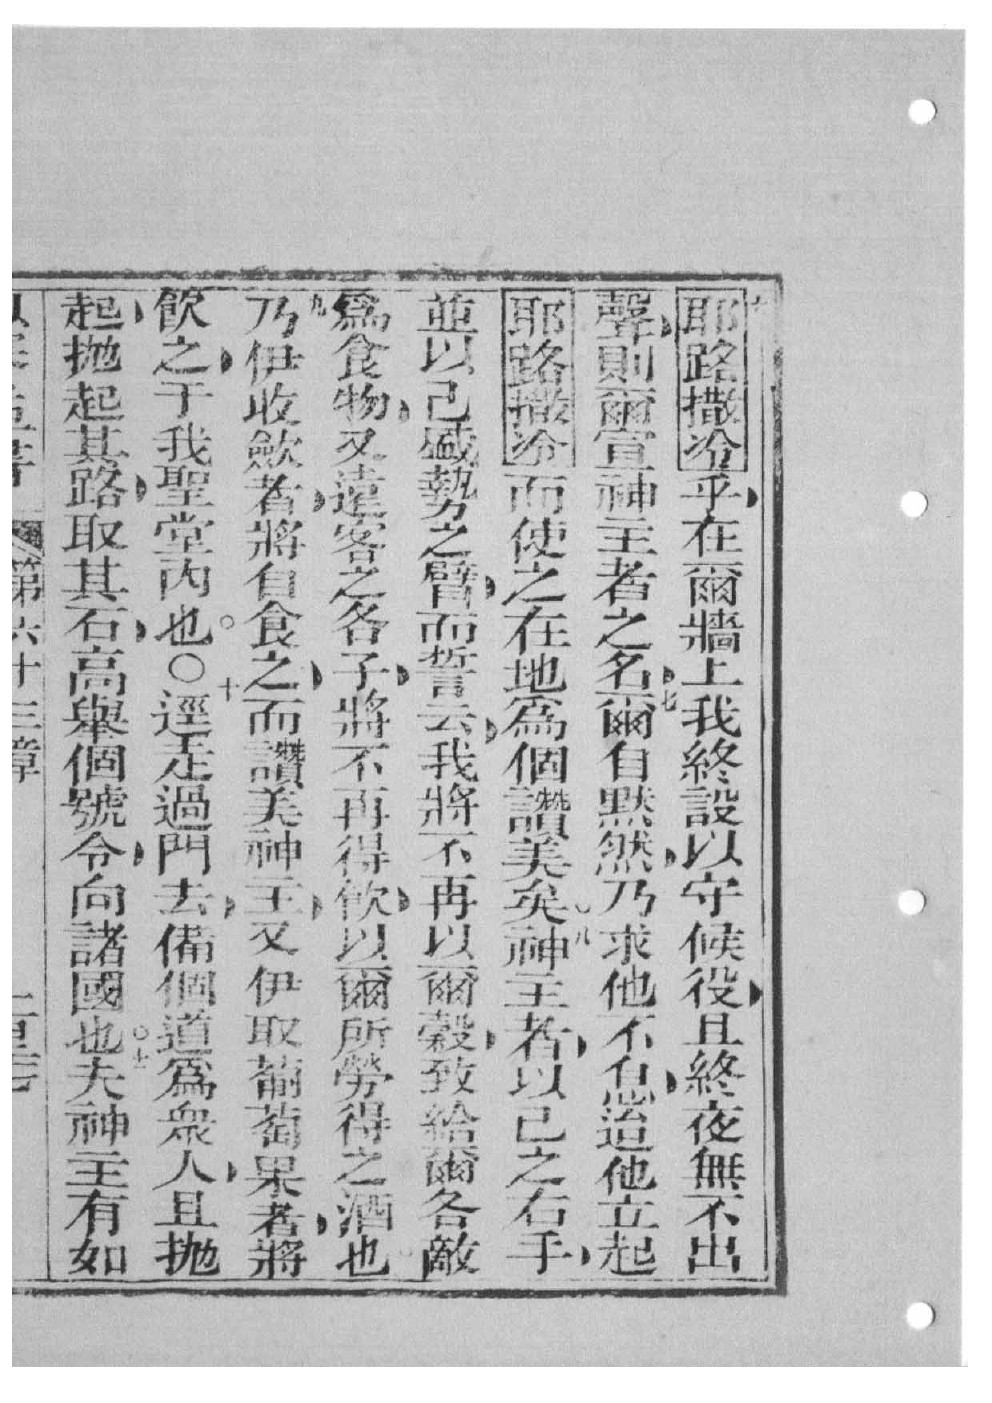 六耶路撒冷乎在爾牆上我終設以守候役且終夜無不出
聲則爾宣神主者之名七爾自默然乃求他不息迨他立起
耶路撒冷而使之在地爲個讚美矣○八神主者以己之右手
並以己威勢之臂而誓云我將不再以爾穀致給爾各敵
爲食物又遠客之各子將不再得飲以爾所勞得之酒也
九乃伊收歛者將自食之而讚美神主又伊取葡萄果者將
飲之于我聖堂內也○○十逕走過門去備個道爲衆人且拋
起拋起其路取其石高舉個號令向諸國也○十一夫神主有如
第六十三章